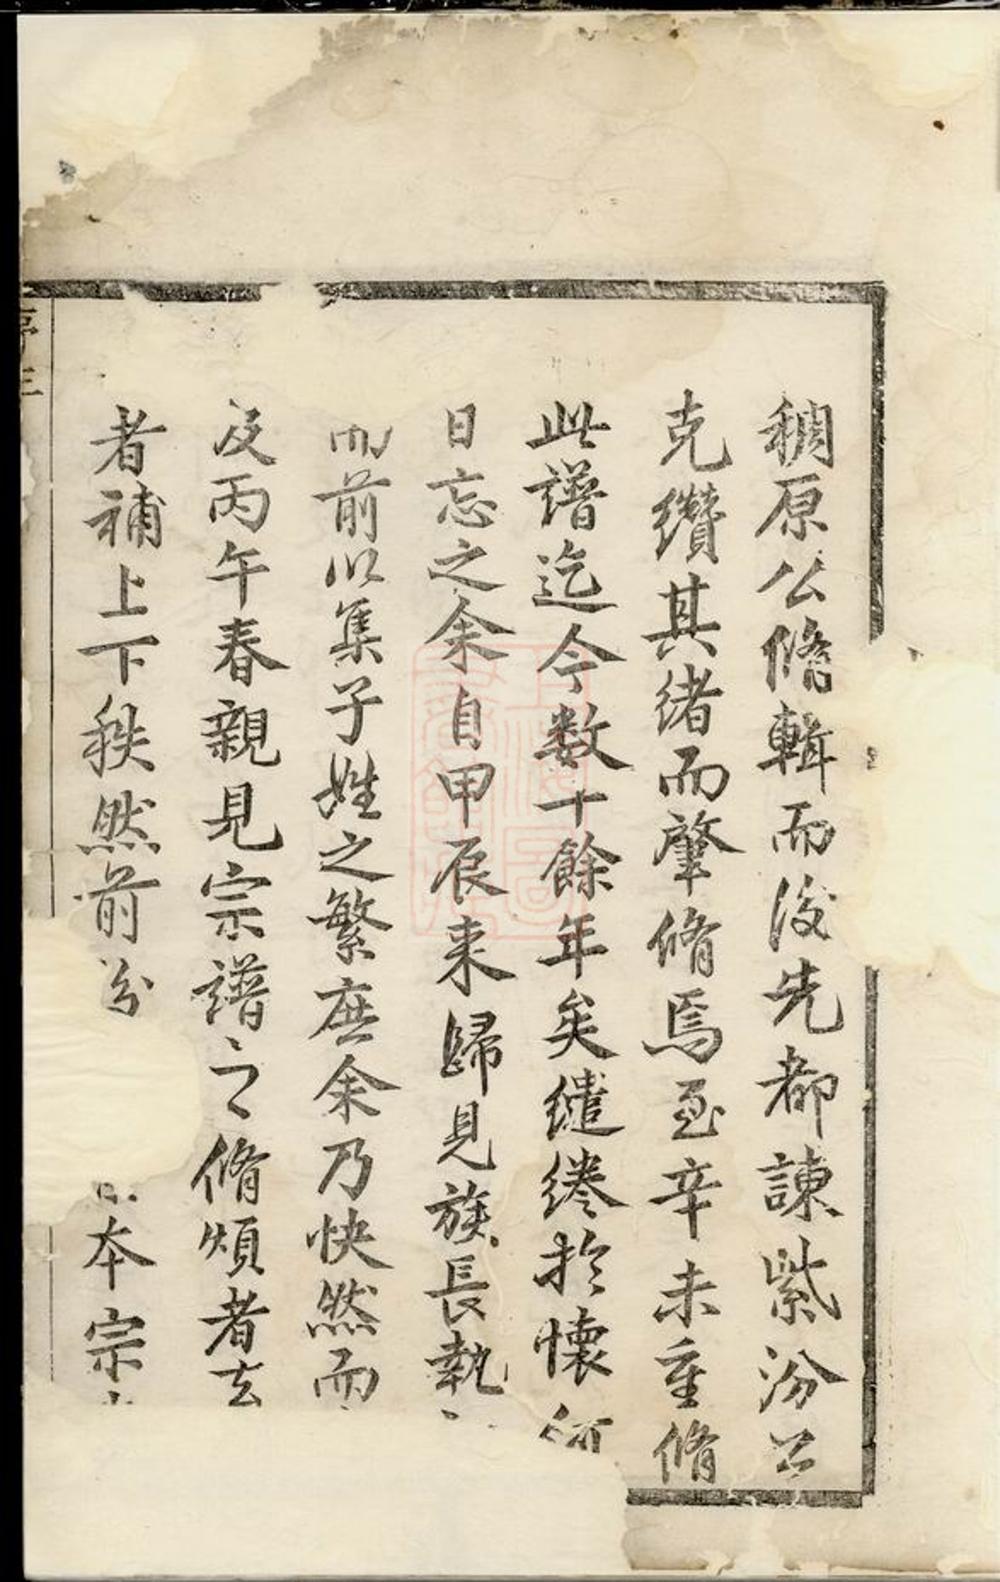 稠原公脩輯而後先都諫紫汾公
克纘其緒而肇脩焉至辛未重脩
此譜迄今數十餘年矣繾綣於懷何
日忘之余自甲辰来歸見族長執
而前以集子姓之繁庶余乃快然而
及丙午春親見宗譜之脩頹者玄
者補上下秩然前汾
本宗